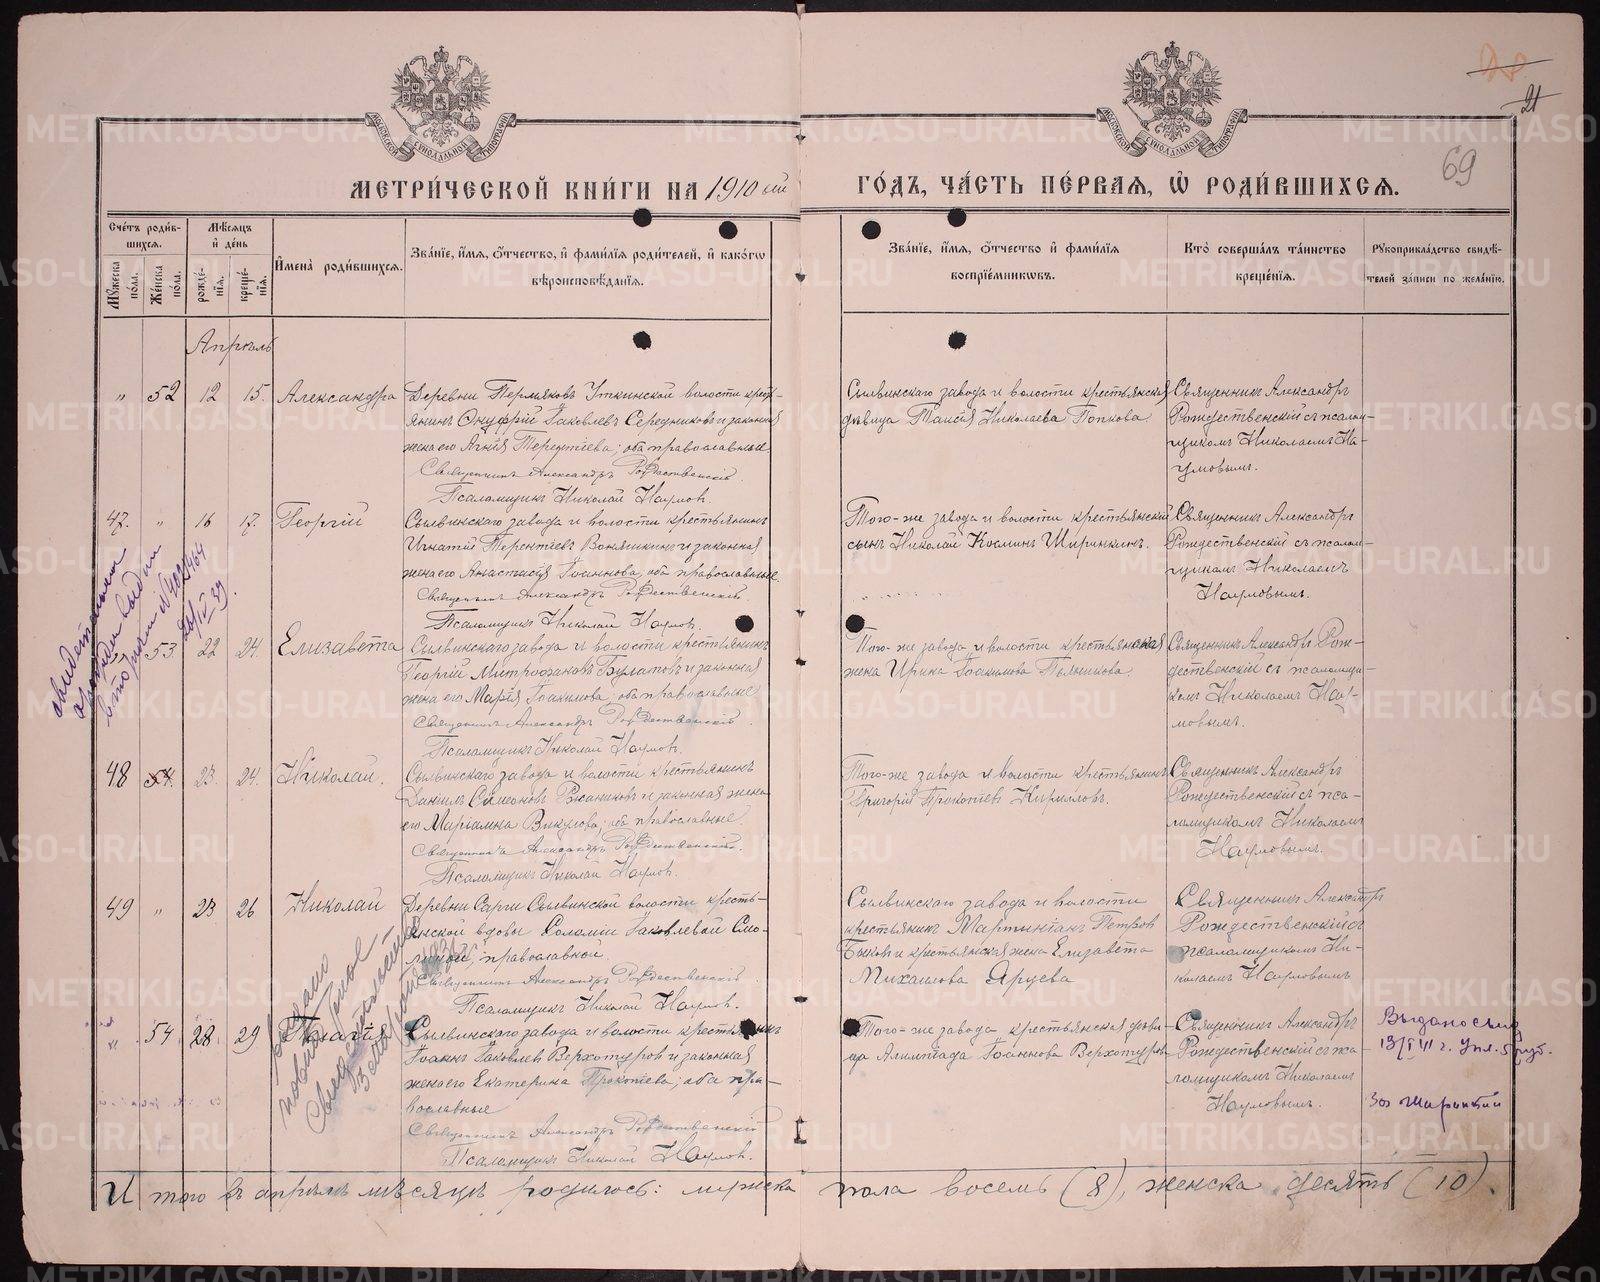 МЕТРИ́ЧЕСКОЙ КНИ́ГИ НА 1910 ый ГО́ДЪ, ЧА́СТЬ ПЕ́РВАЯ, Ѡ РОДИ́ВШИХСЯ.
69
21
Сче́тъ роди́в-
шихся.
Мѣ́сяцъ
и҆ де́нь
Мꙋ́жеска по́ла.
Же́нска по́ла.
рожде́-
нїѧ.
креще́-
нїѧ.
И҆мена̀ роди́вшихся.
Зва́нїе, и҆́мѧ, ѻ҆́тчество, и҆ фами́лїѧ роди́телей, и҆ како́гѡ
вѣроисповѣ́данїѧ.
Зва́нїе, и҆́мѧ, ѻ҆́тчество и҆ фами́лїѧ
воспрїе́мникѡвъ.
Кто̀ соверша́лъ та́инство
креще́нїѧ.
Рꙋкоприкла́дство свидѣ́-
телей за́писи по жела́нїю.
Апрѣль
" 52 12 15. Александра
Деревни Пермяковъ Уткинской волости крест-
янинъ Онуфрій Іаковлевъ Середниковъ и законная
жена его Агнія Терентіева; оба православные.
Священникъ Александръ Рождественскій.
Псаломщикъ Николай Наумовъ.
Сылвинскаго завода и волости крестьянская
дѣвица Таисія Николаева Попкова.
Священникъ Александръ
Рождественскій съ псалом-
щикомъ Николаемъ На-
умовымъ.
47. " 16 17. Георгій
Сылвинскаго завода и волости крестьянинъ
Игнатій Терентіевъ Вонявкинъ и законная
жена его Анастасія Іоаннова, оба православные
Священникъ Александръ Рождественскій
Псаломщикъ Николай Наумовъ.
Того-же завода и волости крестьянскій
сынъ Николай Косминъ Ширинкинъ.
Священникъ Александръ
Рождественскій съ псалом-
щикомъ Николаемъ
Наумовымъ.
53. 22 24. Елизавета
Сылвинскаго завода и волости крестьянинъ
Георгій Митрофановъ Булатовъ и законная
жена его Марія Іоакимова; оба православные
Священникъ Александръ Рождественскій
Псаломщикъ Николай Наумовъ.
Того-же завода и волости крестьянская
жена Ирина Іоакимова Пальникова.
Священникъ Александръ Рож-
дественскій съ псаломщи-
комъ Николаемъ Нау-
мовымъ.
48 54. 23. 24. Николай.
Сылвинскаго завода и волости крестьянинъ
Даніилъ Симеоновъ Ржанниковъ и законная жена
его Маріамна Викулова; оба православные.
Священникъ Александръ Рождественскій.
Псаломщикъ Николай Наумовъ.
Того-же завода и волости крестьянинъ
Григорій Прокопіевъ Кирилловъ.
Священникъ Александръ
Рождественскій съ пса-
ломщикомъ Николаемъ
Наумовымъ.
49 " 23 26 Николай
Деревни Сарги Сылвинской волости кресть-
янской вдовы Соломіи Іаковлевой Смо-
линой, православной.
Священникъ Александръ Рождественскій
Псаломщикъ Николай Наумовъ.
Сылвинскаго завода и волости
крестьянинъ Мартиніанъ Петровъ
Быковъ и крестьянская жена Елизавета
Михаилова Ярцева
Священникъ Александръ
Рождественскій съ
псаломщикомъ Ни-
колаемъ Наумовымъ
" 54 28 29 Пелагія
Сылвинскаго завода и волости крестьянинъ
Іоаннъ Іаковлевъ Верхотуровъ и законная
жена его Екатерина Прокопіева; оба пра-
вославные
Священникъ Александръ Рождественскій
Псаломщикъ Николай Наумовъ.
Того-же завода крестьянская дѣви-
ца Алимпіада Іоаннова Верхотурова
Священникъ Александръ
Рождественскій съ пса-
ломщикомъ Николаемъ
Наумовымъ.
Выдано свид
5 руб.
И того въ апрѣлѣ мѣсяцѣ родилось: мужска пола восемь (8), женска десять (10).
METRIKI.GASO-URAL.RU